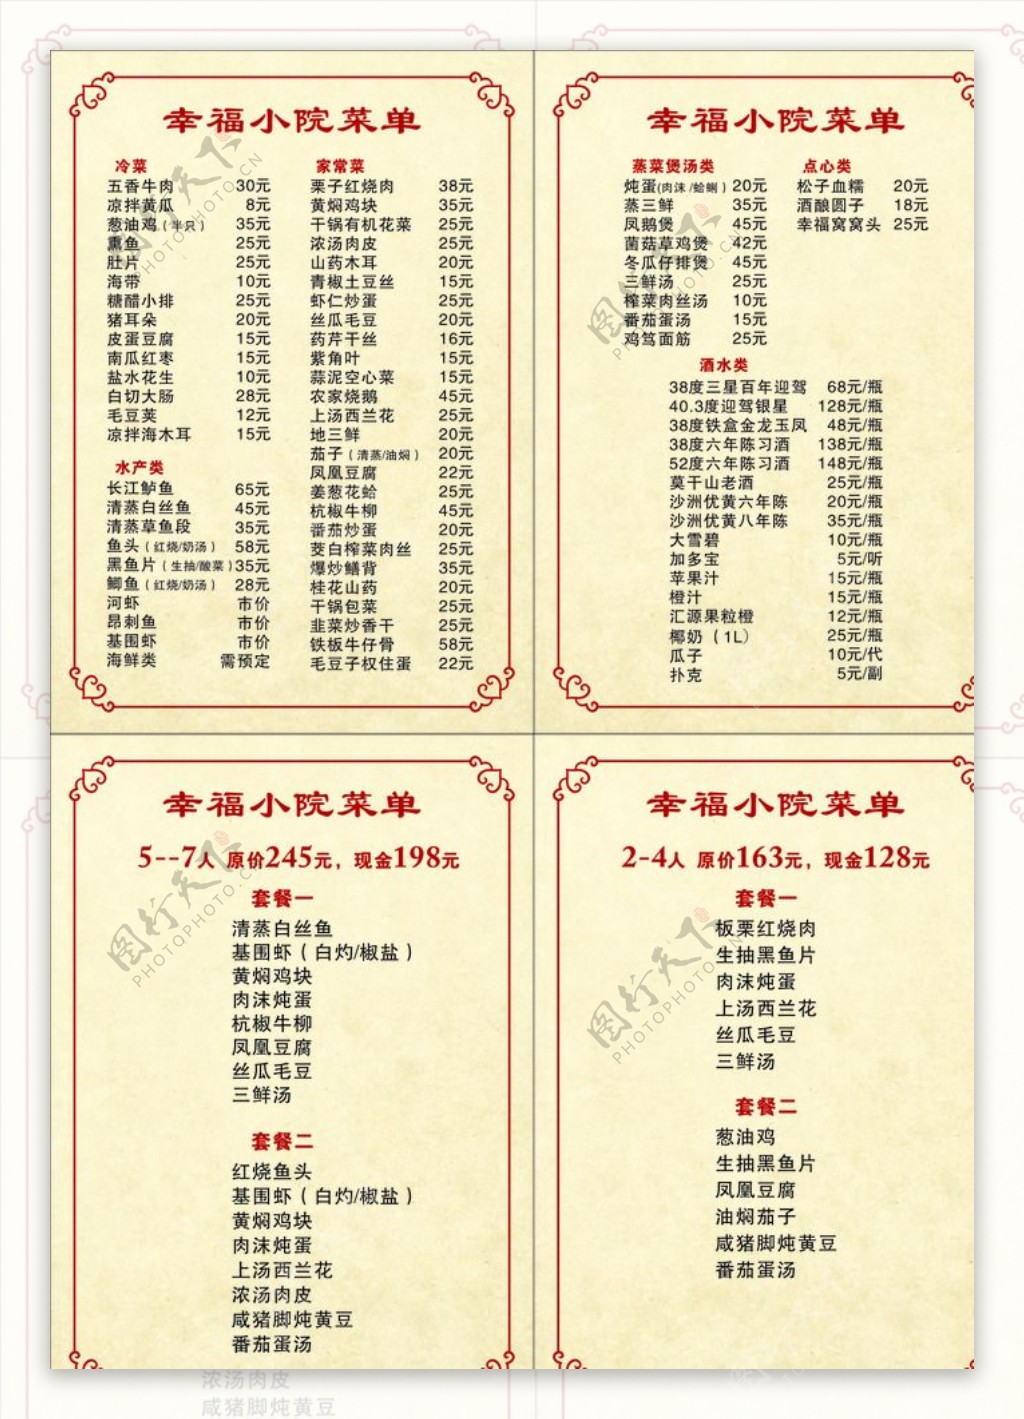 幸福小院菜单
冷菜
五香牛肉 30元
凉拌黄瓜 8元
葱油鸡(半只) 35元
熏鱼 25元
肚片 25元
海带 10元
糖醋小排 25元
猪耳朵 20元
皮蛋豆腐 15元
南瓜红枣 15元
盐水花生 10元
白切大肠 28元
毛豆荚 12元
凉拌海木耳 15元
水产类
长江鲈鱼 65元
清蒸白丝鱼 45元
清蒸草鱼段 35元
鱼头(红烧/奶汤) 58元
黑鱼片(生抽/酸菜)35元
鲫鱼(红烧/奶汤) 28元
河虾 市价
昂刺鱼 市价
基围虾 市价
海鲜类 需预定
家常菜
栗子红烧肉 38元
黄焖鸡块 35元
干锅有机花菜 25元
浓汤肉皮 25元
山药木耳 20元
青椒土豆丝 15元
虾仁炒蛋 25元
丝瓜毛豆 20元
药芹干丝 16元
紫角叶 15元
蒜泥空心菜 15元
农家烧鹅 45元
上汤西兰花 25元
地三鲜 20元
茄子(清蒸/油焖) 20元
凤凰豆腐 22元
姜葱花蛤 25元
杭椒牛柳 45元
番茄炒蛋 20元
茭白榨菜肉丝 25元
爆炒鳝背 35元
桂花山药 20元
干锅包菜 25元
韭菜炒香干 25元
铁板牛仔骨 58元
毛豆子权住蛋 22元
幸福小院菜单
蒸菜煲汤类
炖蛋(肉沫/蛤蜊) 20元
蒸三鲜 35元
凤鹅煲 45元
菌菇草鸡煲 42元
冬瓜仔排煲 45元
三鲜汤 25元
榨菜肉丝汤 10元
番茄蛋汤 15元
鸡笃面筋 25元
点心类
松子血糯 20元
酒酿圆子 18元
幸福窝窝头 25元
酒水类
38度三星百年迎驾 68元/瓶
40.3度迎驾银星 128元/瓶
38度铁盒金龙玉凤 48元/瓶
38度六年陈习酒 138元/瓶
52度六年陈习酒 148元/瓶
莫干山老酒 25元/瓶
沙洲优黄六年陈 20元/瓶
沙洲优黄八年陈 35元/瓶
大雪碧 10元/瓶
加多宝 5元/听
苹果汁 15元/瓶
橙汁 15元/瓶
汇源果粒橙 12元/瓶
椰奶(1L) 25元/瓶
瓜子 10元/代
扑克 5元/副
幸福小院菜单
5--7人 原价245元，现金198元
套餐一
清蒸白丝鱼
基围虾(白灼/椒盐)
黄焖鸡块
肉沫炖蛋
杭椒牛柳
凤凰豆腐
丝瓜毛豆
三鲜汤
套餐二
红烧鱼头
基围虾(白灼/椒盐)
黄焖鸡块
肉沫炖蛋
上汤西兰花
浓汤肉皮
咸猪脚炖黄豆
番茄蛋汤
幸福小院菜单
2-4人 原价163元，现金128元
套餐一
板栗红烧肉
生抽黑鱼片
肉沫炖蛋
上汤西兰花
丝瓜毛豆
三鲜汤
套餐二
葱油鸡
生抽黑鱼片
凤凰豆腐
油焖茄子
咸猪脚炖黄豆
番茄蛋汤
浓汤肉皮
咸猪脚炖黄豆
图行天下
PHOTOPHOTO.CN
图行天下
PHOTOPHOTO.CN
图行天下
PHOTOPHOTO.CN
图行天下
PHOTOPHOTO.CN